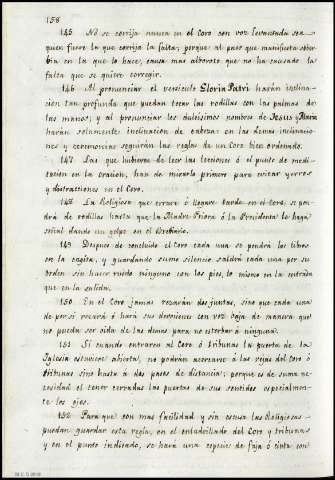 158
145 No se corrija nunca en el Coro con voz levantada sea
quien fuere la que corrija la falta; porque al paso que manifiesta sober-
bia en la que lo hace, causa mas alboroto que no ha causado la
falta que se quiere corregir.
146 Al pronunciar el versículo Gloria Patri harán inclina-
cion tan profunda que puedan tocar las rodillas con las palmas de
las manos; y al pronunciar los dulcísimos nombres de Jesus y Maria
harán solamente inclinacion de cabeza: en las demas inclinacio-
nes y ceremonias seguirán las reglas de un Coro bien ordenado.
147 Las que hubieren de leer las lecciones ó el punto de medi-
tacion en la oracion, han de mirarlo primero para evitar yerros
y distracciones en el Coro.
148 La Religiosa que errare ó llegare tarde en el Coro, se pon-
drá de rodillas hasta que la Madre Priora ó la Presidenta le haga
señal dando un golpe en el Breviario.
149 Despues de concluido el Coro cada una se pondrá los libros
en la cagita, y guardando sumo silencio saldrá cada una por su
orden sin hacer ruido ninguno con los pies, lo mismo en la entrada
que en la salida.
150 En el Coro jamas rezarán dos juntas, sino que cada una
de por si rezará ó hará sus devociones con voz baja de manera que
no pueda ser oida de las demás para no estorbar á ninguna.
151 Si cuando entraren al Coro ó tribunas la puerta de la
Iglesia estuviere abierta, no podrán acercarse á las rejas del Coro ó
tribunas sino hasta á dos pasos de distancia; porque es de suma ne-
cesidad el tener cerradas las puertas de sus sentidos especialmen-
te los ojos.
152 Para que con mas facilidad y sin escusa las Religiosas
puedan guardar esta regla, en el entadrillado del Coro y tribunas
y en el punto indicado, se hará una especie de faja ó cinta con